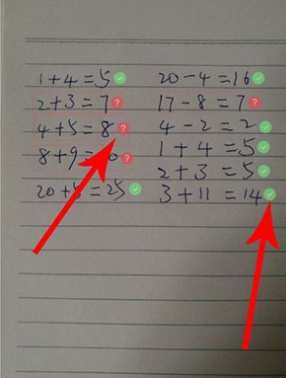 1+4=5 20-4=16
2+3=7 ? 17-8=7 ?
4+5=8 ? 4-2=2
8+9= ? 1+4=5
20+5=25 2+3=5
3+11=14